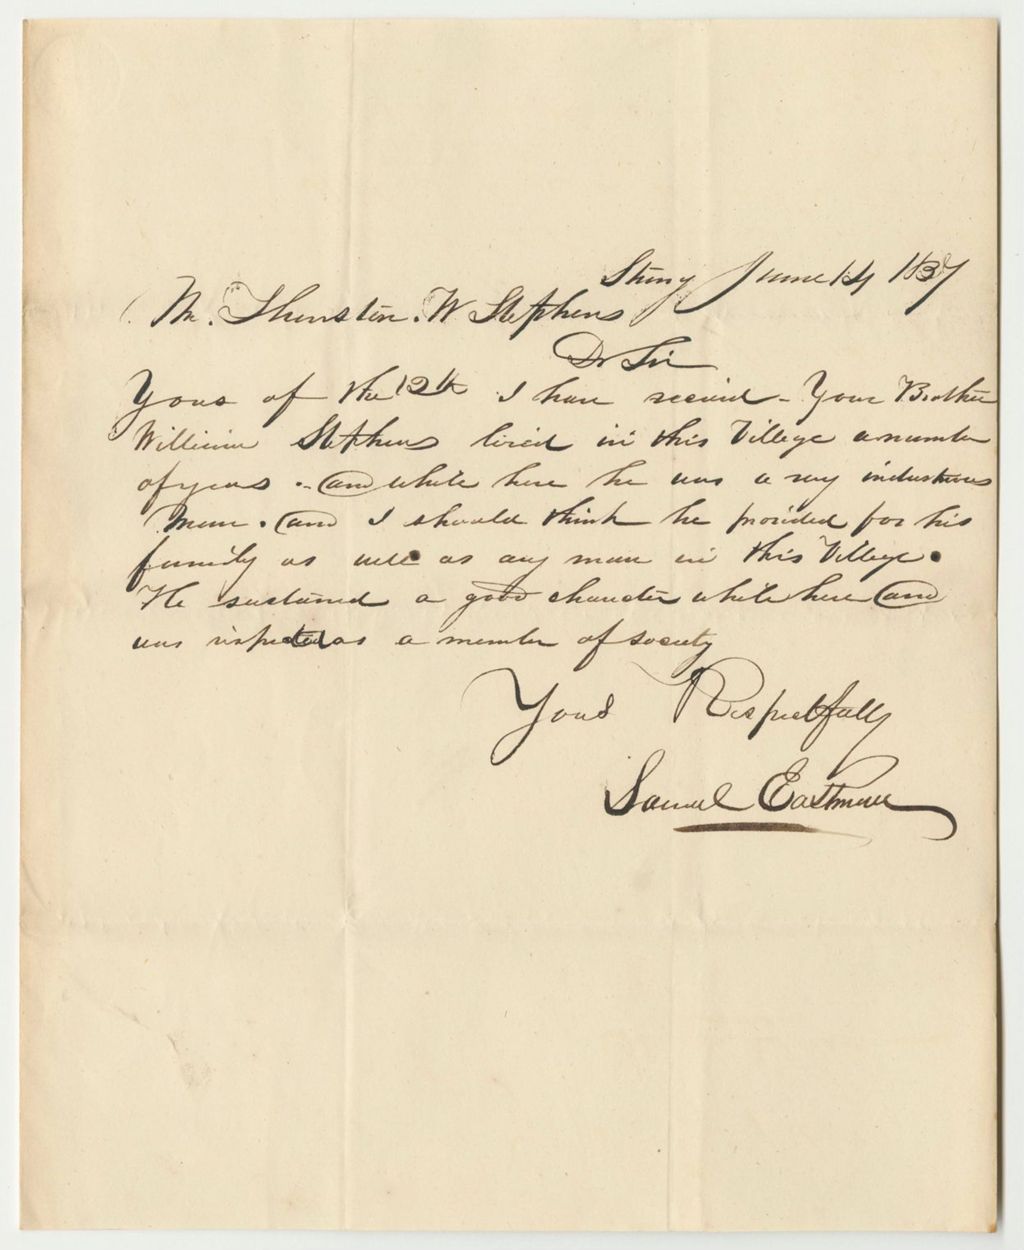 Strong June 14 1837
Mr. Thurston. W Stephens
Dr Sir
Yours of the 12th I have received - Your Brother
William Stephens lived in this Village a number
of years .- and while here he was a very industrious
Man . and I should think he provided for his
family as well as any man in this Village.
He sustained a good character while here and
was respected as a member of society
Yours Respectfully
Samuel Eastman